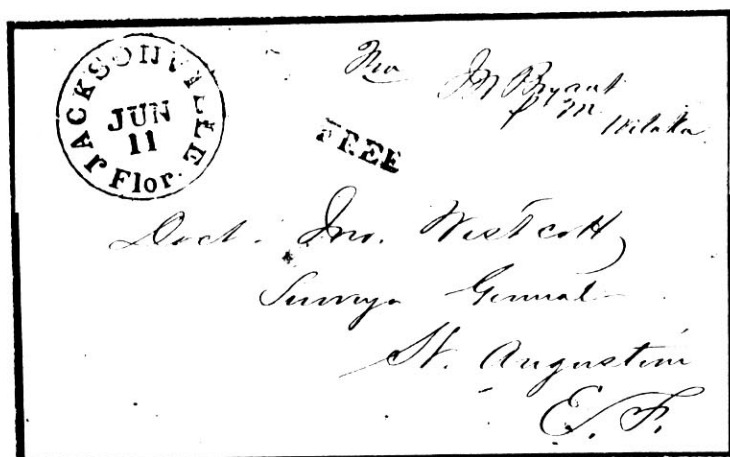 JACKSONVILLE
JUN
11
Flor.
J M Bryant
P M
Welaka
FREE
Doct. Jno. Westcott
Surveyr General
St. Augustine
E. F.